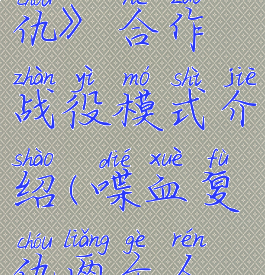 chóu hé zuò
仇》合作
zhàn yì mó shì jiè
战役模式介
shào dié xuè fù
绍(喋血复
chóu liǎng gè rén
仇两个人